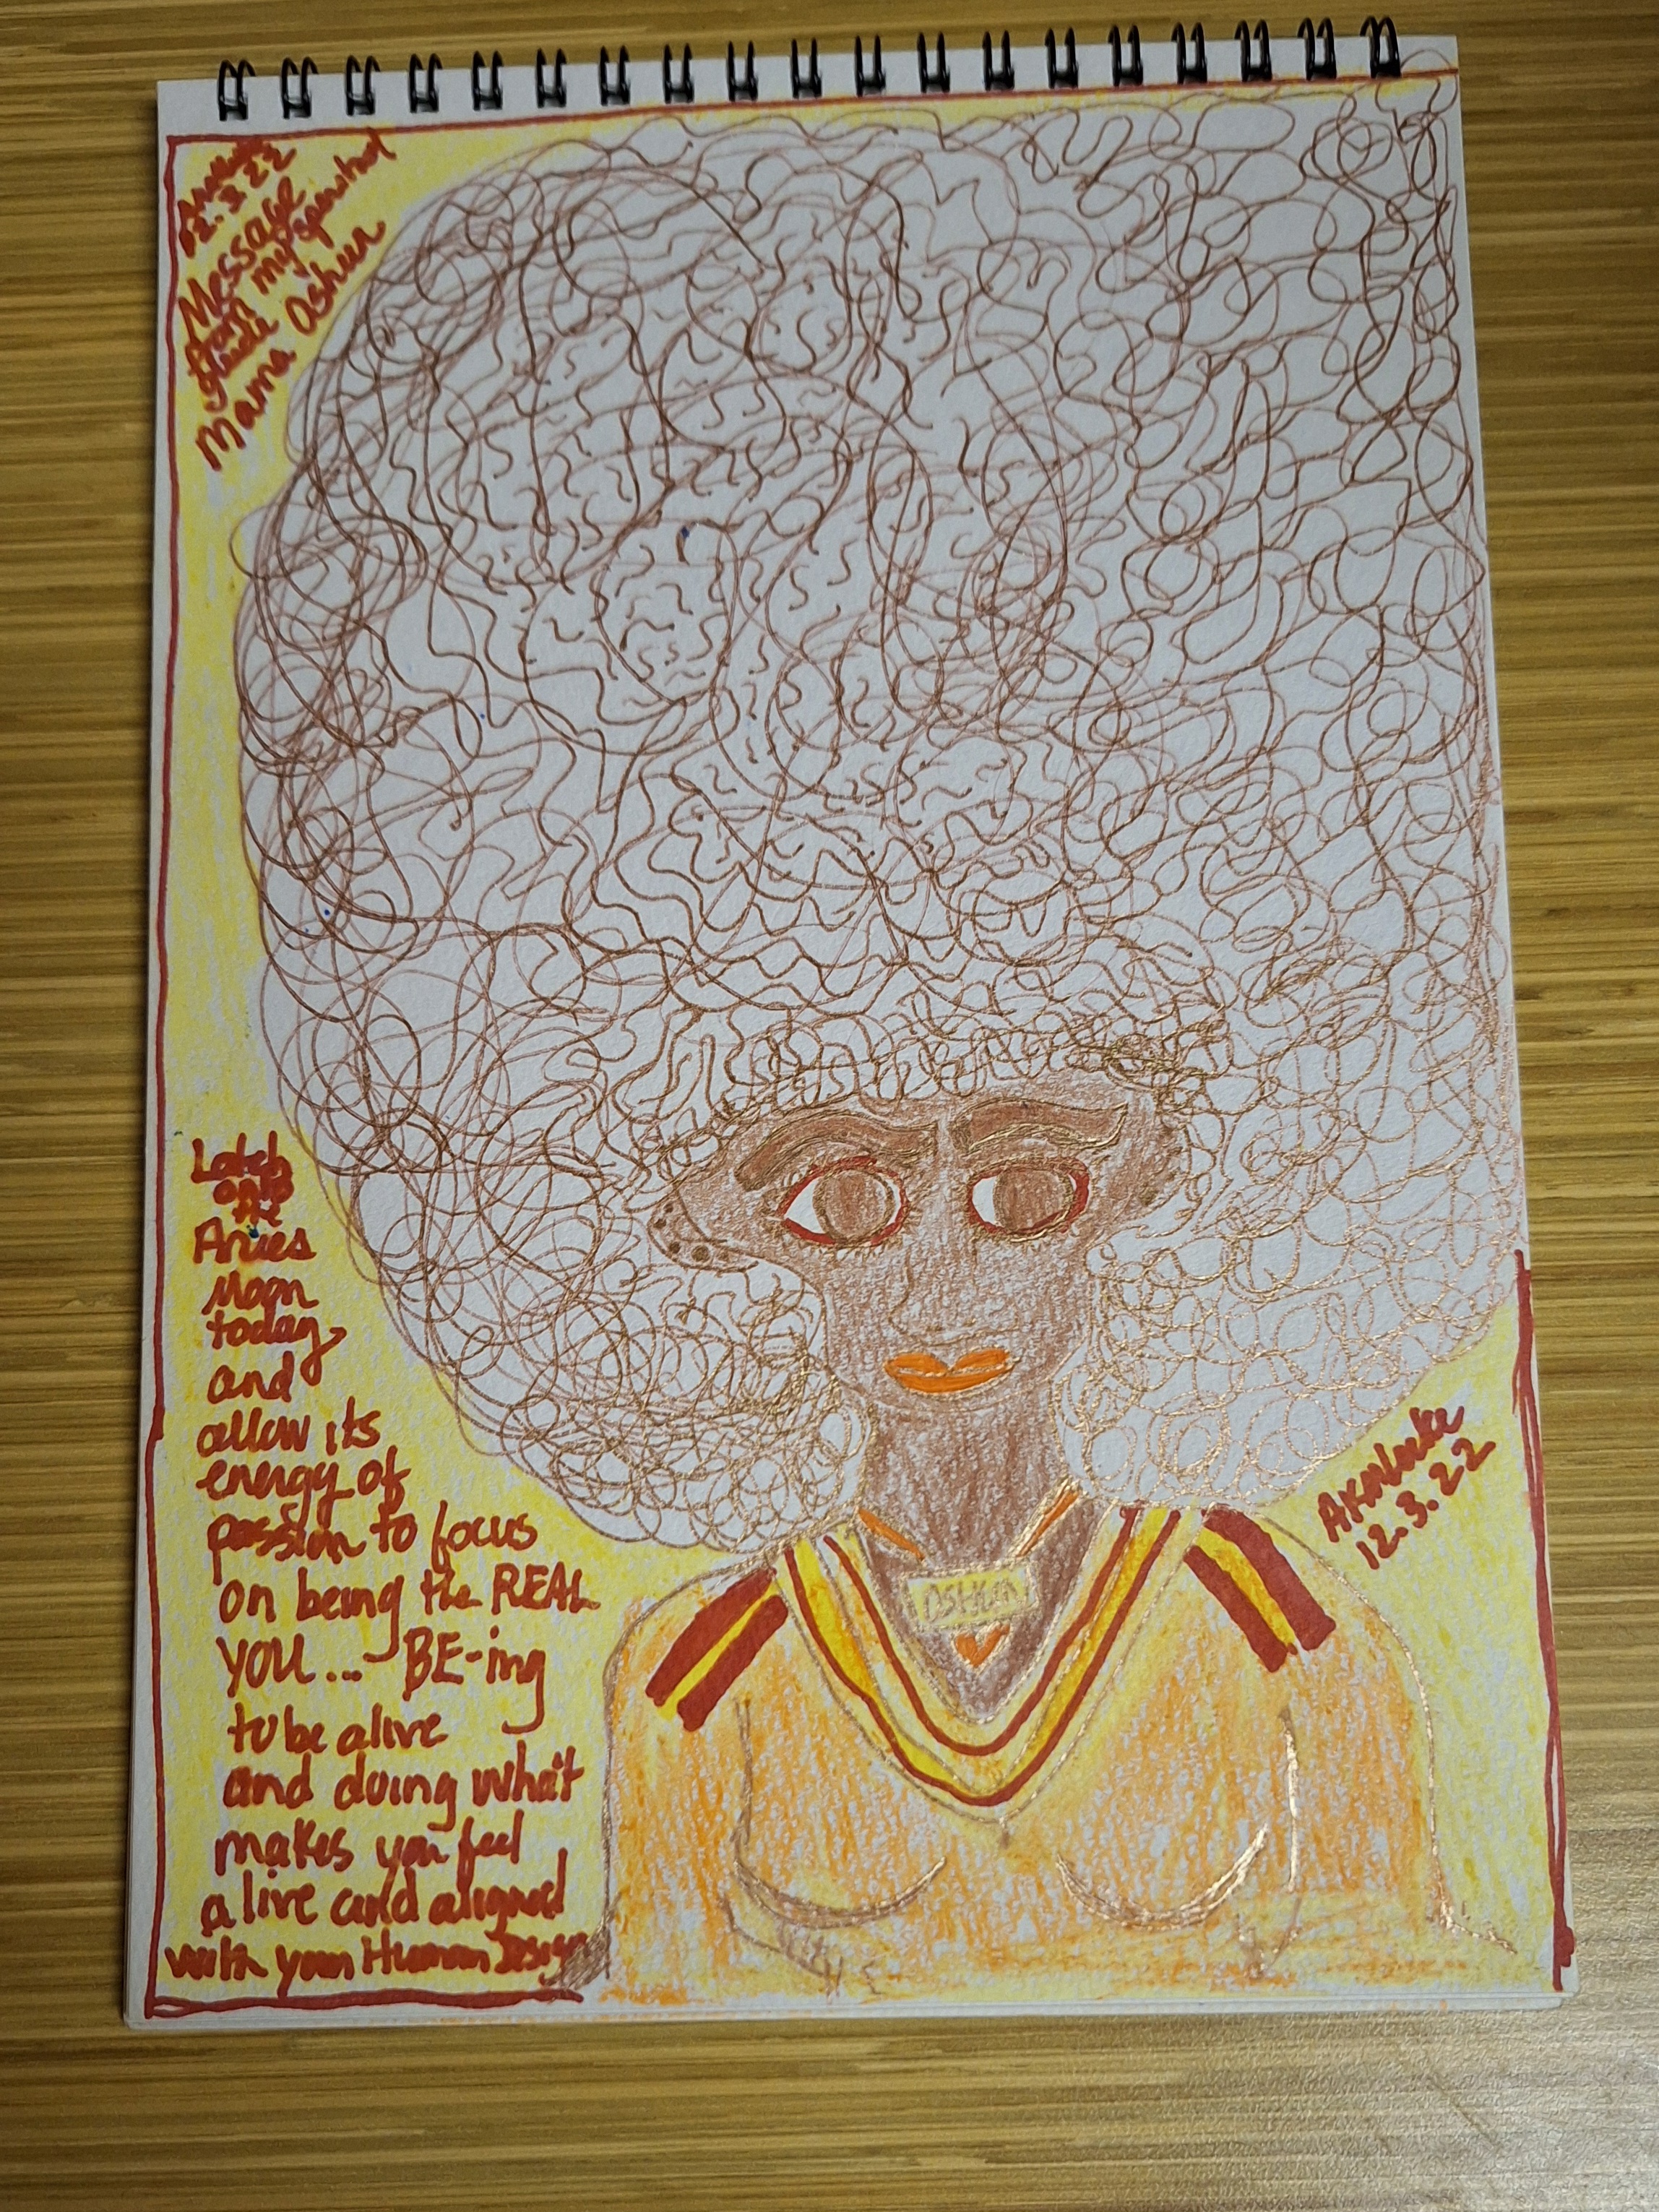 12.3.22
Message
from my spiritual
guide
Mama Oshun
Latch
onto
the
Aries
Moon
today,
and
allow its
energy of
passion to focus
on being the REAL
YOU... BE-ing
to be alive
and doing what
makes you feel
alive and aligned
with your Human Design
12.3.22
OSHUN